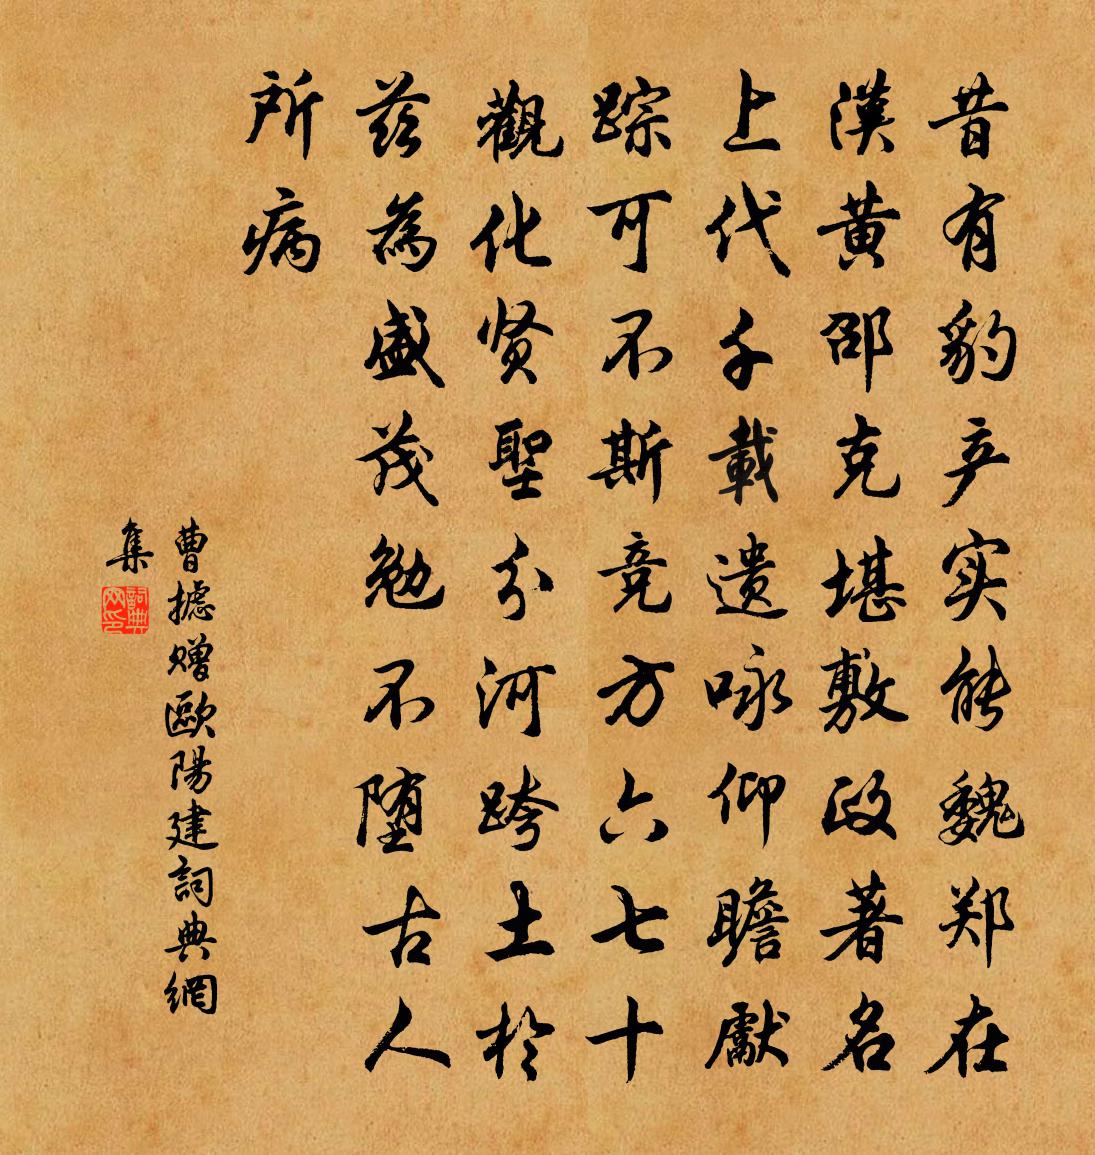 昔有豹产实能魏郑在
漢黄邵克堪敷政著名
上代千載遗咏仰瞻獻
踪可不斯竞方六七十
觀化贤聖分河跨土於
兹為盛茂勉不堕古人
所病
曹摅赠歐陽建詞典網
集
詞典网印